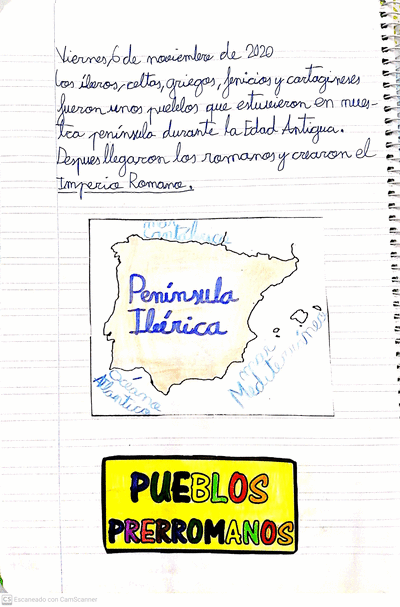 Viernes, 6 de noviembre de 2020
Los íberos, celtas, griegos, fenicios y cartagineses
fueron unos pueblos que estuvieron en nues-
tra península durante la Edad Antigua.
Despues llegaron los romanos y crearon el
Imperio Romano.
mar
Cantábrico
Península
Ibérica
mar
Mediterráneo
Océano
Atlántico
PUEBLOS
PRERROMANOS
CS Escaneado con CamScanner